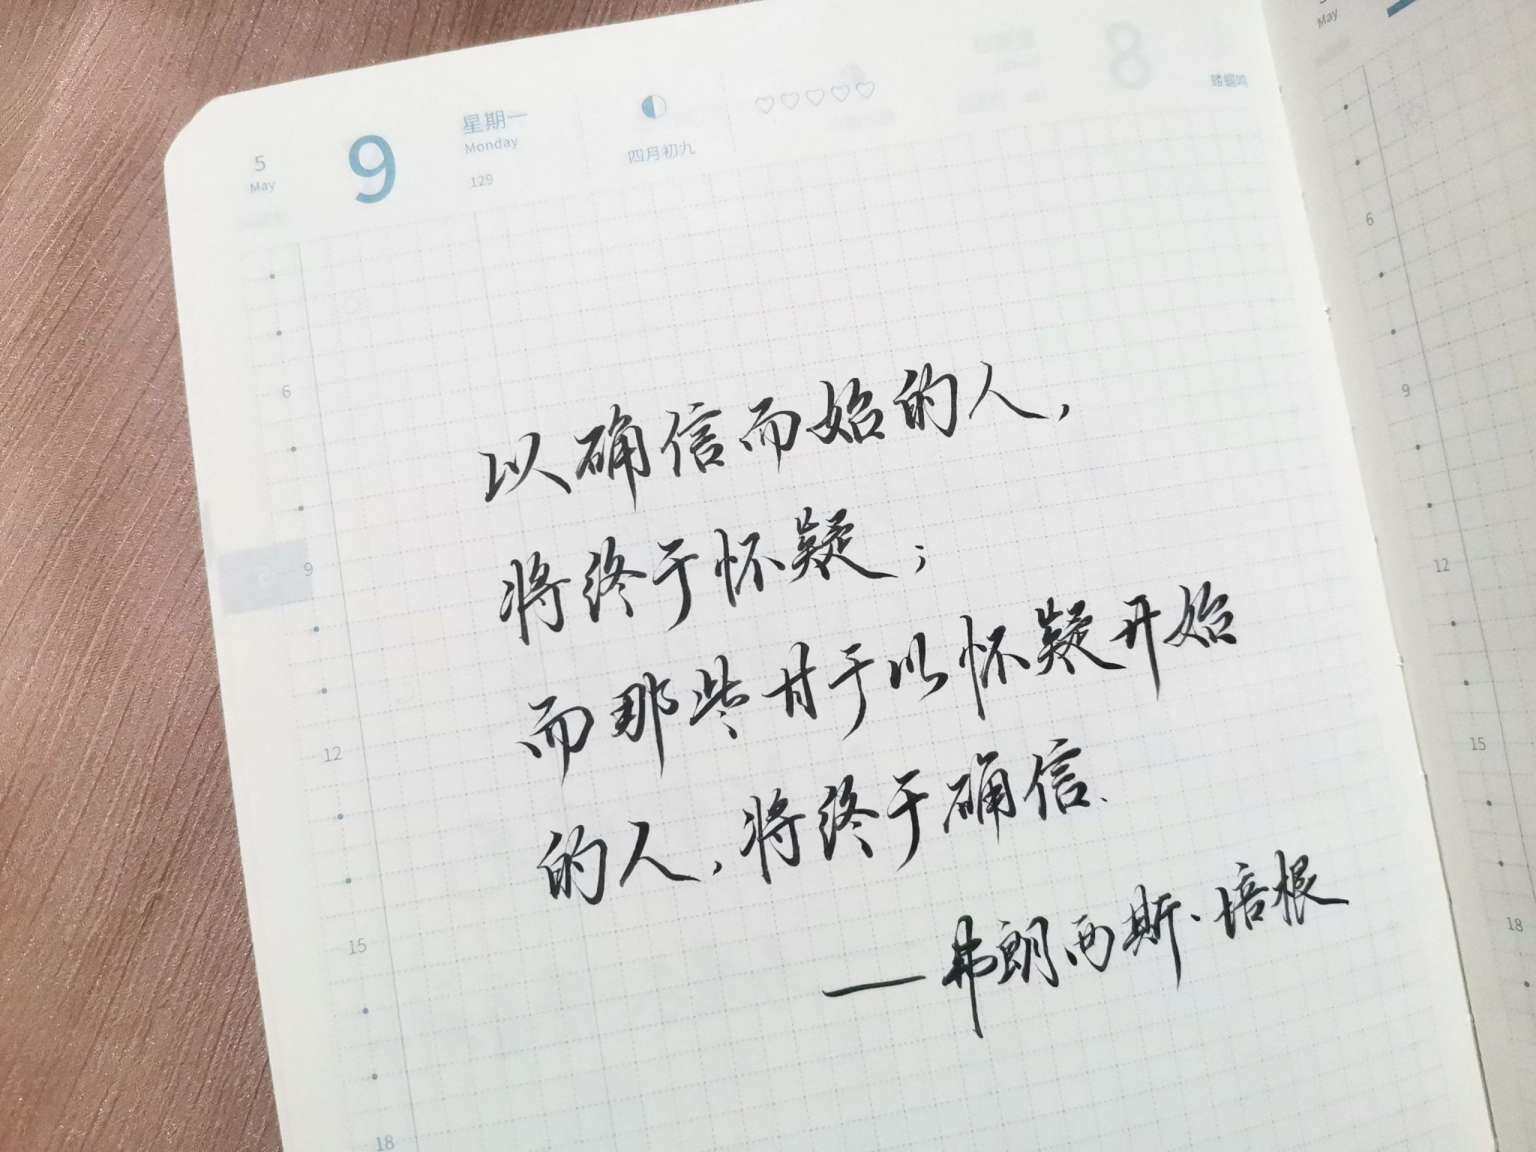 5
May
9
星期一
Monday
129
四月初九
May
6
9
12
15
18
6
9
12
15
18
以确信而始的人，
将终于怀疑；
而那些甘于以怀疑开始
的人，将终于确信.
——弗朗西斯·培根